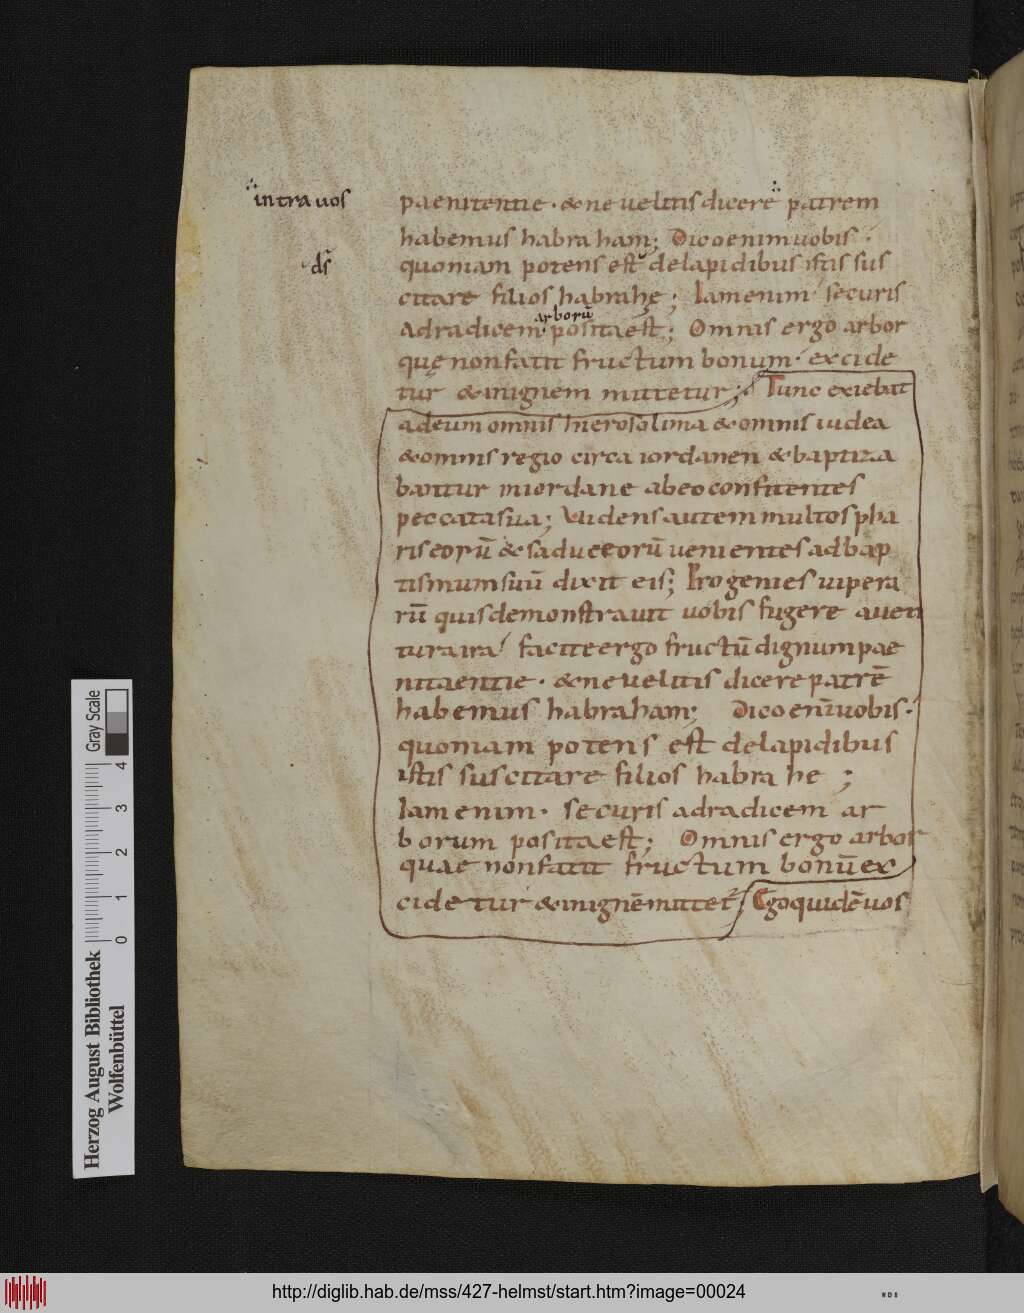 intra uos
paenitentie · & ne uelitis dicere patrem
habemus habraham; Dico enim uobis ·
ds̄
quoniam potens est de lapidibus istis sus
citare filios habrahę; Iam enim securis
arborū
ad radicem posita est; Omnis ergo arbor
quę non facit fructum bonum · excide
tur & in ignem mittetur; Tunc exiebat
ad eum omnis hierosolima & omnis iudea
& omnis regio circa iordanen & baptiza
bantur in iordane ab eo confitentes
peccata sua; Uidens autem multos pha
riseorū & saduceorū uenientes ad bap
tismum suū dixit eis; Progenies uipera
rū quis demonstrauit uobis fugere a uen
tura ira facite ergo fructū dignum pae
nitaentie · & ne uelitis dicere patrē
habemus habraham; Dico enī uobis ·
quoniam potens est de lapidibus
istis suscitare filios habrahe ;
Iam enim · securis ad radicem ar
borum posita est; Omnis ergo arbor
quae non facit fructum bonū ex
cidetur & in ignē mittet̄; Ego quidē uos
Gray Scale
0 1 2 3 4
Herzog August Bibliothek
Wolfenbüttel
http://diglib.hab.de/mss/427-helmst/start.htm?image=00024